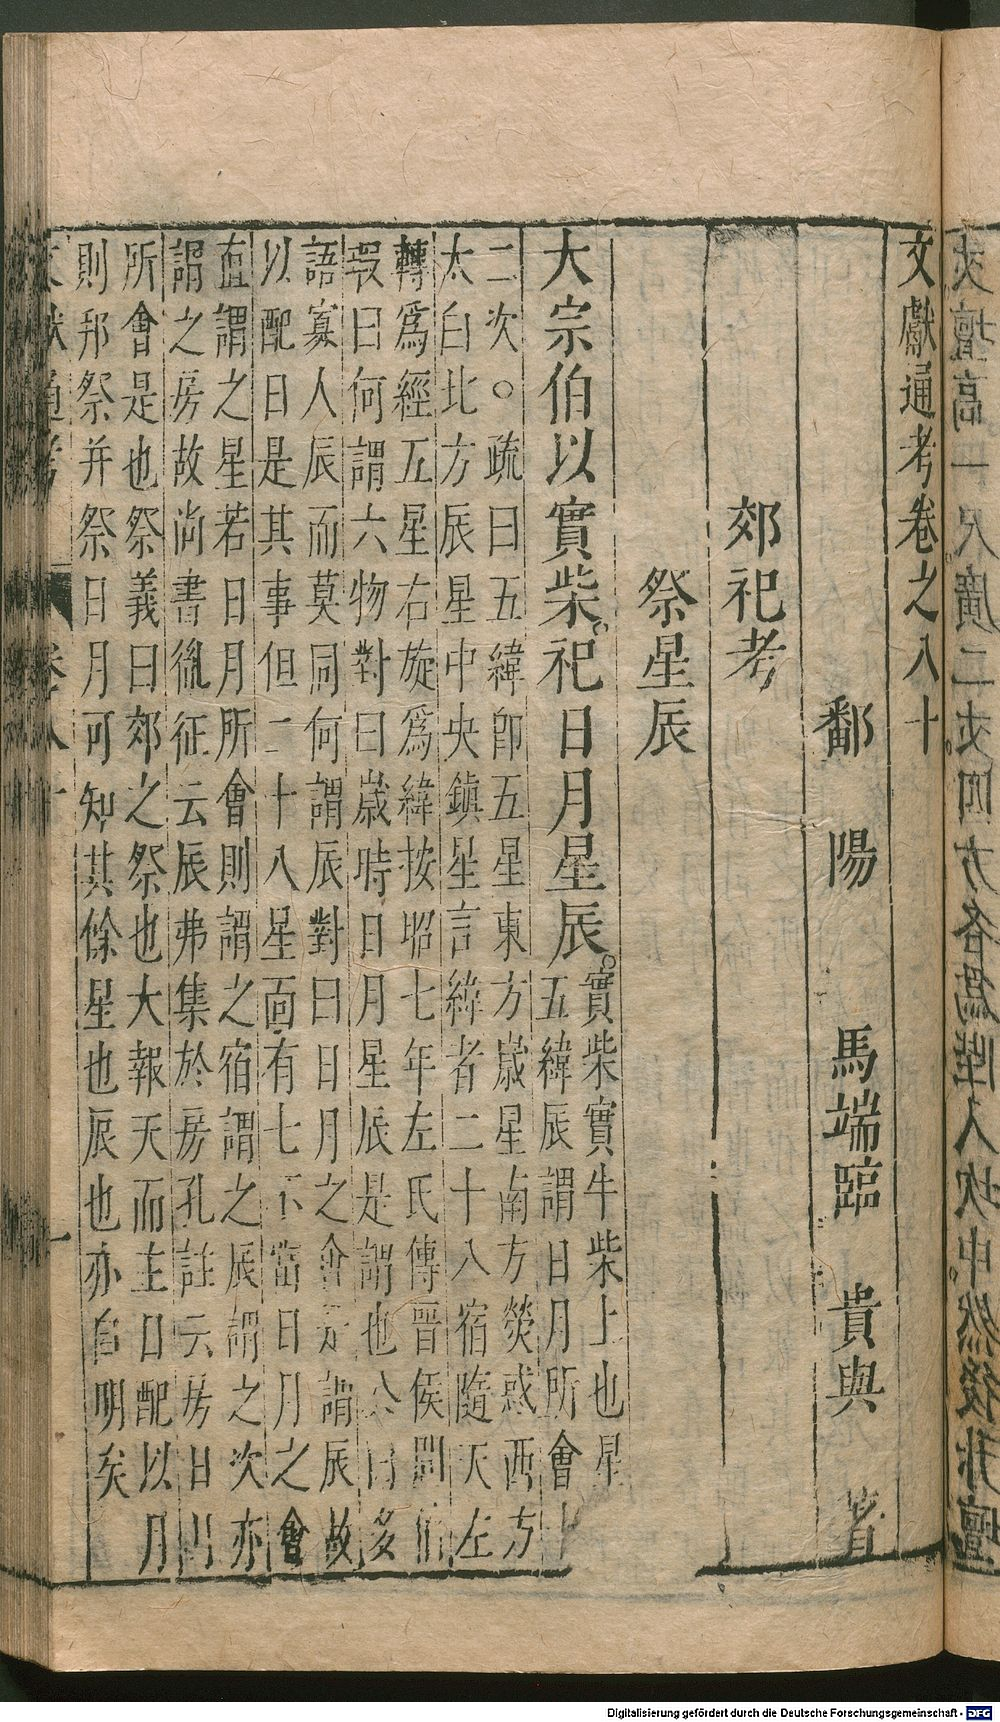 文獻通考卷之八十
鄱 陽 馬端臨 貴與 著
郊祀考
祭星辰
大宗伯以實柴祀日月星辰
實柴實牛柴上也星
五緯辰謂日月所會十
二次○疏曰五緯卽五星東方歲星南方熒惑西方
太白北方辰星中央鎮星言緯者二十八宿隨天左
轉爲經五星右旋爲緯按昭七年左氏傳晉侯問伯
瑕曰何謂六物對曰歲時日月星辰是謂也公曰多
語寡人辰而莫同何謂辰對曰日月之會是謂辰故
以配日是其事但二十八星面有七不當日月之會
直謂之星若日月所會則謂之宿謂之辰謂之次亦
謂之房故尚書胤征云辰弗集於房孔註云房日月
所會是也祭義曰郊之祭也大報天而主日配以月
則邦祭并祭日月可知其餘星也辰也亦自明矣
文獻通考 卷八十 一
Digitalisierung gefördert durch die Deutsche Forschungsgemeinschaft - DFG